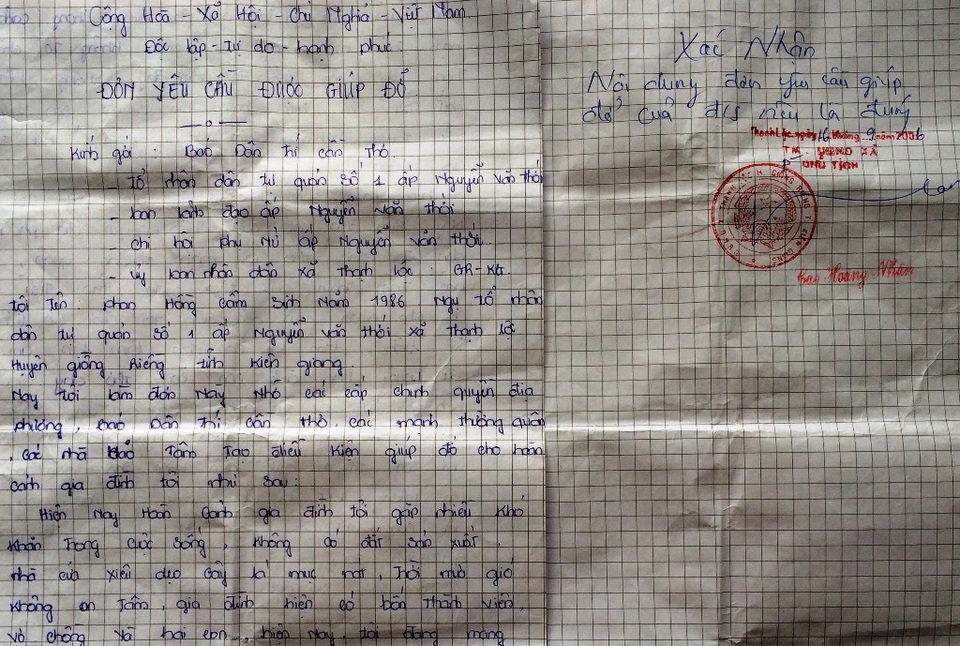 Cộng Hoà - Xả Hội - Chủ Nghĩa - Việt Nam.
Độc lập - tự do - hạnh phúc.
ĐƠN YÊU CẦU ĐƯỢC GIÚP ĐỞ
Kính gửi : Báo Dân trí cần Thơ
- Tổ nhân dân tự quản số 1 ấp Nguyễn văn thới
- ban lảnh đạo ấp Nguyễn văn thới
- chi hội phụ nử ấp Nguyễn văn thới
- Uỷ ban nhân dân xã thạnh lộc : GR-KG
tôi tên : phan Hồng cẩm sinh năm 1986 Ngụ tổ nhân
dân tự quản số 1 ấp Nguyễn văn thới xả thạnh lộc
Huyện giồng Riềng tỉnh kiên giang.
Nay tôi làm đơn này Nhờ các cấp chính quyền địa
phương, báo Dân trí cần thơ. các mạnh thường quân
. các nhà hảo Tâm tạo điều kiện giúp đở cho hoàn
cảnh gia đình tôi như sau :
Hiện nay Hoàn cảnh gia đình tôi gặp nhiều khó
khăn trong cuộc sống, không có đất sản xuất.
nhà cửa xiêu dẹo cây lá mục nát, trời mưa gió
không an tâm, gia đình hiện có bốn thành viên,
vợ chồng và hai con, hiện nay tôi đang mang
Xác Nhận
Nội dung đơn yêu cầu giúp
đở của đ/s nêu là đúng
Thạnh Lộc, ngày 16 tháng 9 năm 2016
TM. UBND XÃ
CHỦ TỊCH
Hoàng Nhâm